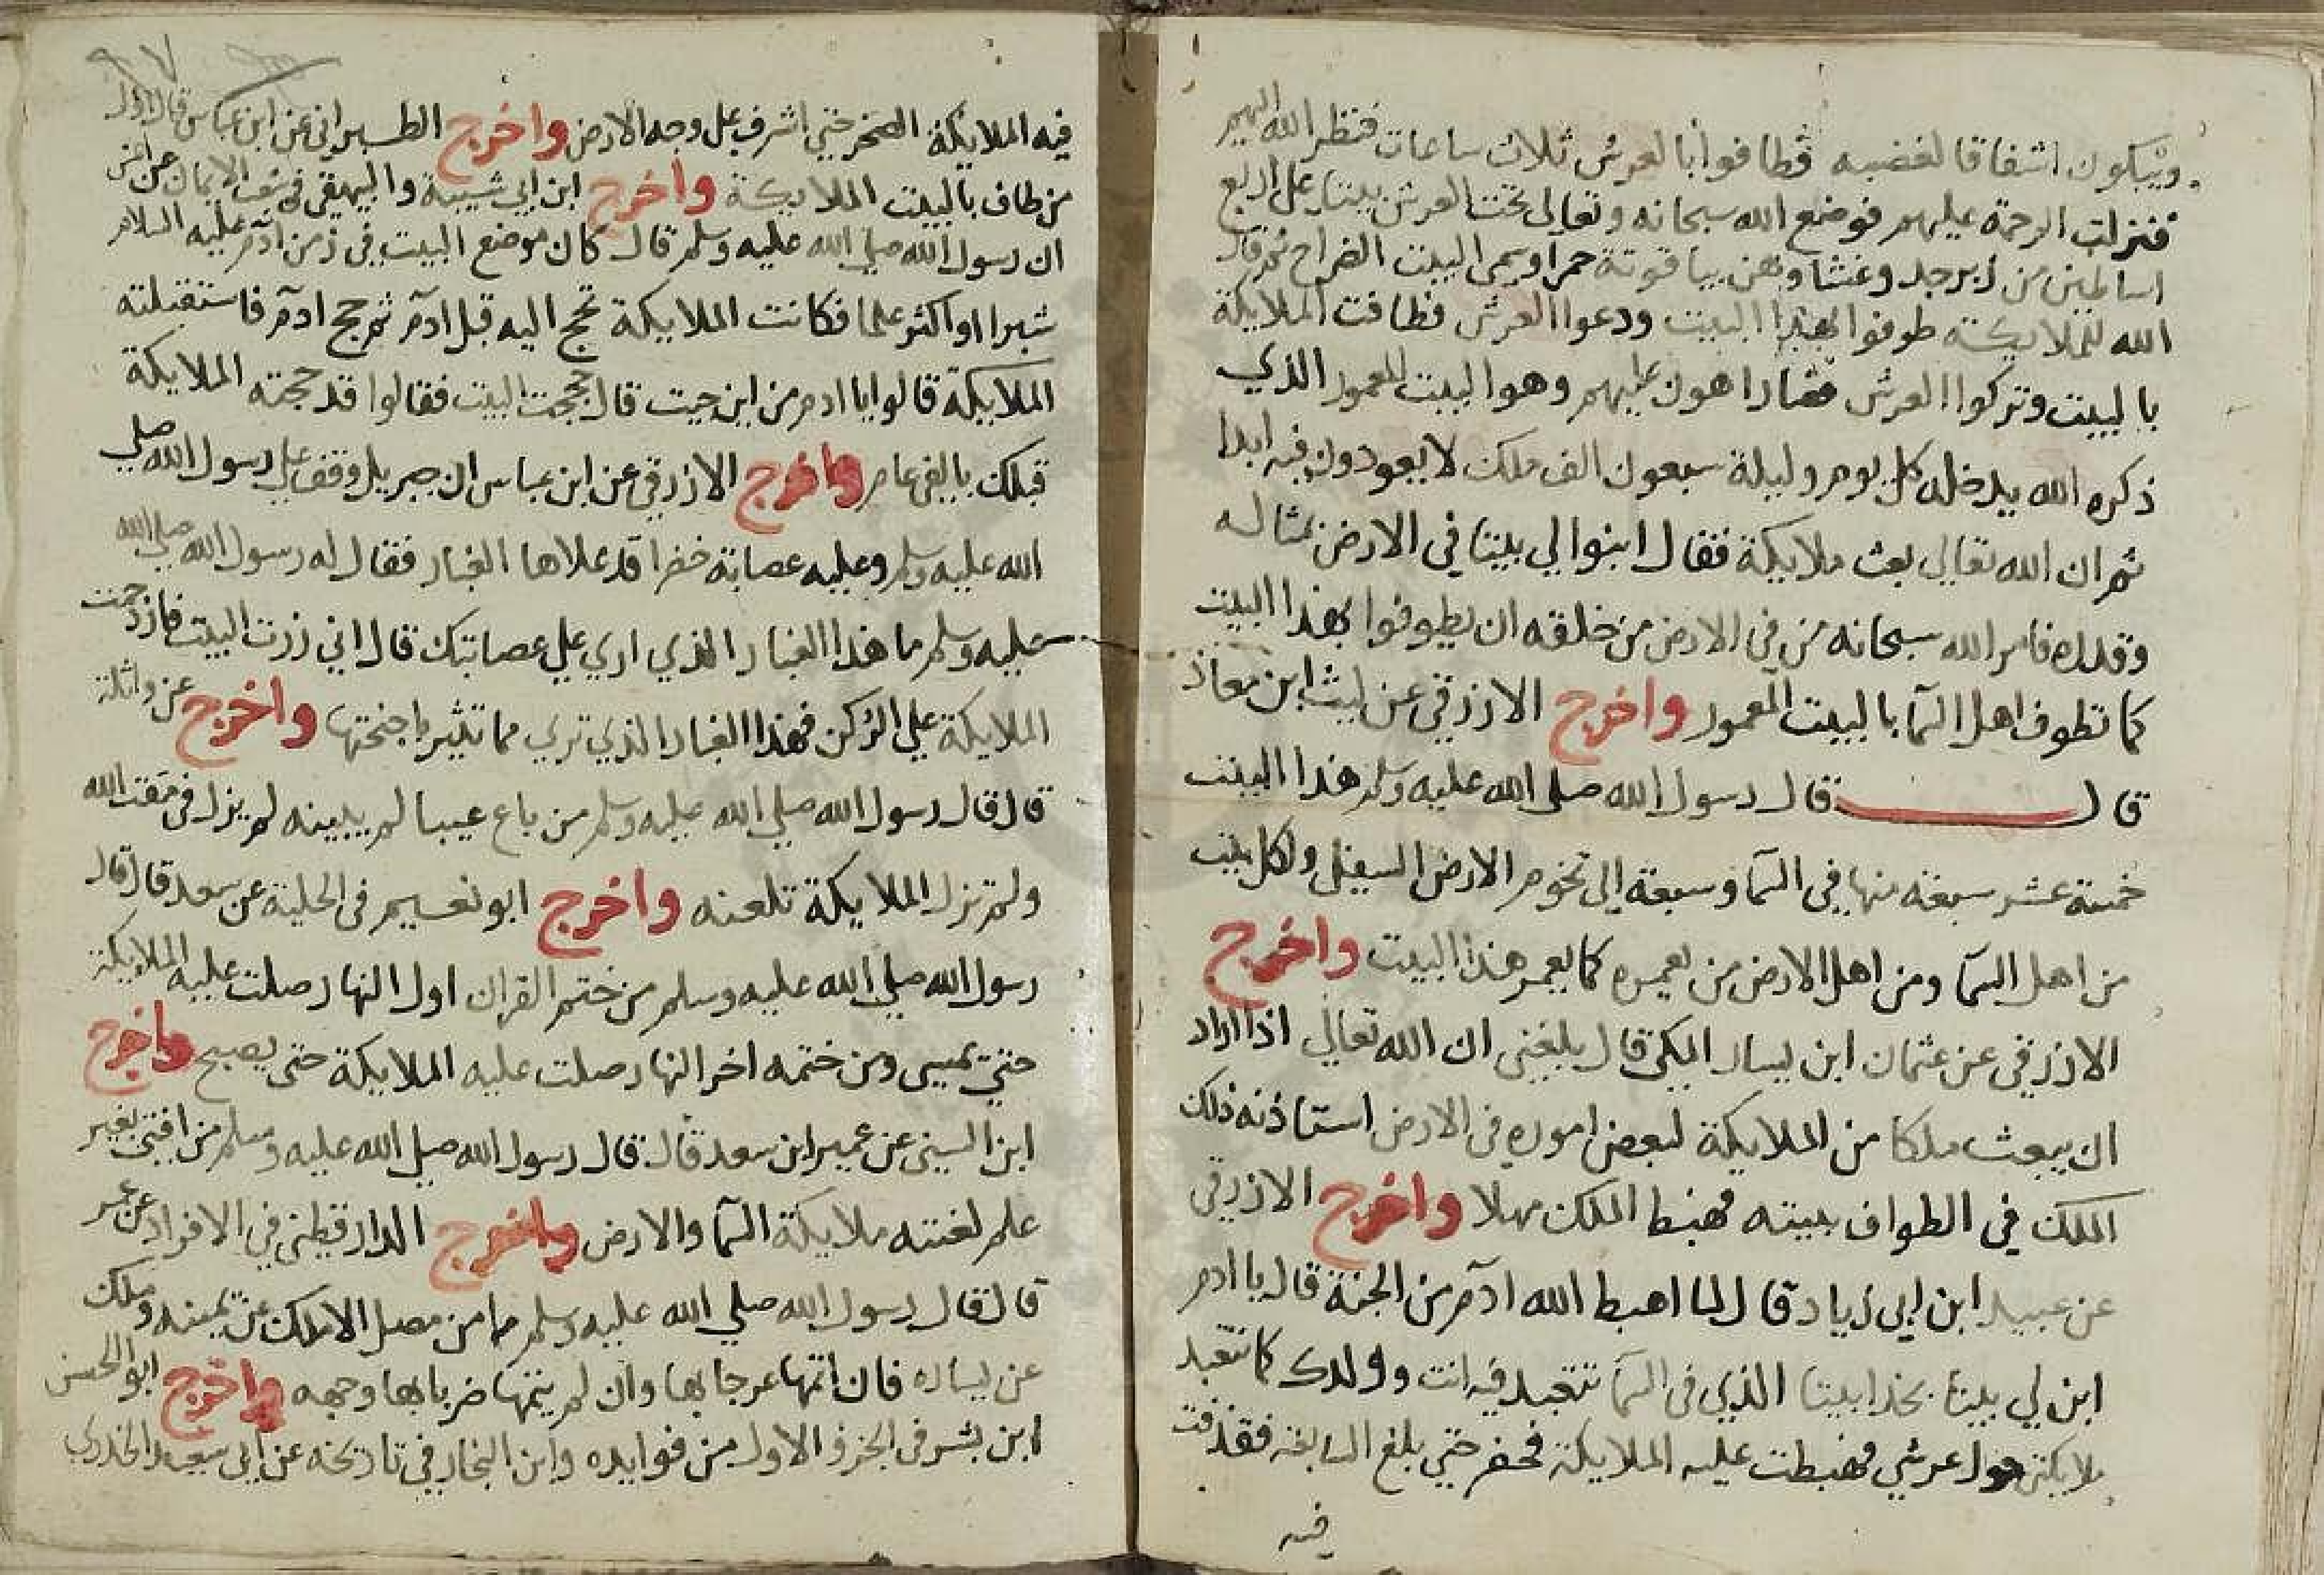 ويبكون اشفاقا لغضبه فطافوا بالعرش ثلاث ساعات فنظر الله اليهم
فنزلت الرحمة عليهم فوضع الله سبحانه وتعالى تحت العرش بيتا على اربع
اساطين من زبرجد وغشاوهن بياقوتة حمرا وسمى البيت الضراح ثم قال
الله للملايكة طوفوا بهذا البيت ودعوا العرش فطافت الملايكة
بالبيت وتركوا العرش فصار اهون عليهم وهو البيت المعمور الذي
ذكره الله يدخله كل يوم وليلة سبعون الف ملك لا يعودون فيه ابدا
ثم ان الله تعالى بعث ملايكة فقال ابنوا لي بيتا في الارض بمثاله
وقدره فامر الله سبحانه من في الارض من خلقه ان يطوفوا بهذا البيت
كما تطوف اهل السما بالبيت المعمور واخرج الازرقي عن ليث ابن معاذ
قال قال رسول الله صلى الله عليه وسلم هذا البيت
خمسة عشر سبعة منها في السما وسبعة الى تخوم الارض السفلى ولكل بيت
من اهل السما ومن اهل الارض من يعمره كما يعمر هذا البيت واخرج
الازرقي عن عثمان ابن يسار المكي قال بلغني ان الله تعالى اذا اراد
ان يبعث ملكا من الملايكة لبعض اموره في الارض استاذنه ذلك
الملك في الطواف ببيته فهبط الملك مهلا واخرج الازرقي
عن عبيد ابن ابي زياد قال لما اهبط الله ادم من الجنة قال يا ادم
ابن لي بيتا بحذا بيتا الذي في السما تتعبد فيه انت وولدك كما تتعبد
ملايكتي حول عرشي فهبطت عليه الملايكة فحفر حتى بلغ السابعة فقذفت
فيه
٩٧
فيه الملايكة الصخر حتى اشرف على وجه الارض واخرج الطبراني عن ابن عباس قال اول
من طاف بالبيت الملايكة واخرج ابن ابي شيبة والبيهقي في شعب الايمان عن انس
ان رسول الله صلى الله عليه وسلم قال كان موضع البيت في زمن ادم عليه السلام
شبرا او اكثر علما فكانت الملايكة تحج اليه قبل ادم ثم حج ادم فاستقبلته
الملايكة قالوا يا ادم من اين جيت قال حججت البيت فقالوا قد حجته الملايكة
قبلك بالفي عام واخرج الازرقي عن ابن عباس ان جبريل وقف على رسول الله صلى
الله عليه وسلم وعليه عصابة خضرا قد علاها الغبار فقال له رسول الله صلى الله
عليه وسلم ما هذا الغبار الذي ارى على عصابتك قال اني زرت البيت فازدحمت
الملايكة على الركن فهذا الغبار الذي ترى مما تثير باجنحتها واخرج عن واثلة
قال قال رسول الله صلى الله عليه وسلم من باع عيبا لم يبينه لم يزل في مقت الله
ولم تزل الملايكة تلعنه واخرج ابو نعيم في الحلية عن سعد قال قال
رسول الله صلى الله عليه وسلم من ختم القران اول النهار صلت عليه الملايكة
حتى يمسي ومن ختمه اخر النهار صلت عليه الملايكة حتى يصبح واخرج
ابن السني عن عمير ابن سعد قال قال رسول الله صلى الله عليه وسلم من افتى بغير
علم لعنته ملايكة السما والارض واخرج الدارقطني في الافراد عن عمر
قال قال رسول الله صلى الله عليه وسلم ما من مصل الا ملك عن يمينه وملك
عن يساره فان اتمها عرجا بها وان لم يتمها ضربا بها وجهه واخرج ابو الحسن
ابن بشر في الجزؤ الاول من فوايده وابن النجار في تاريخه عن ابي سعيد الخدري